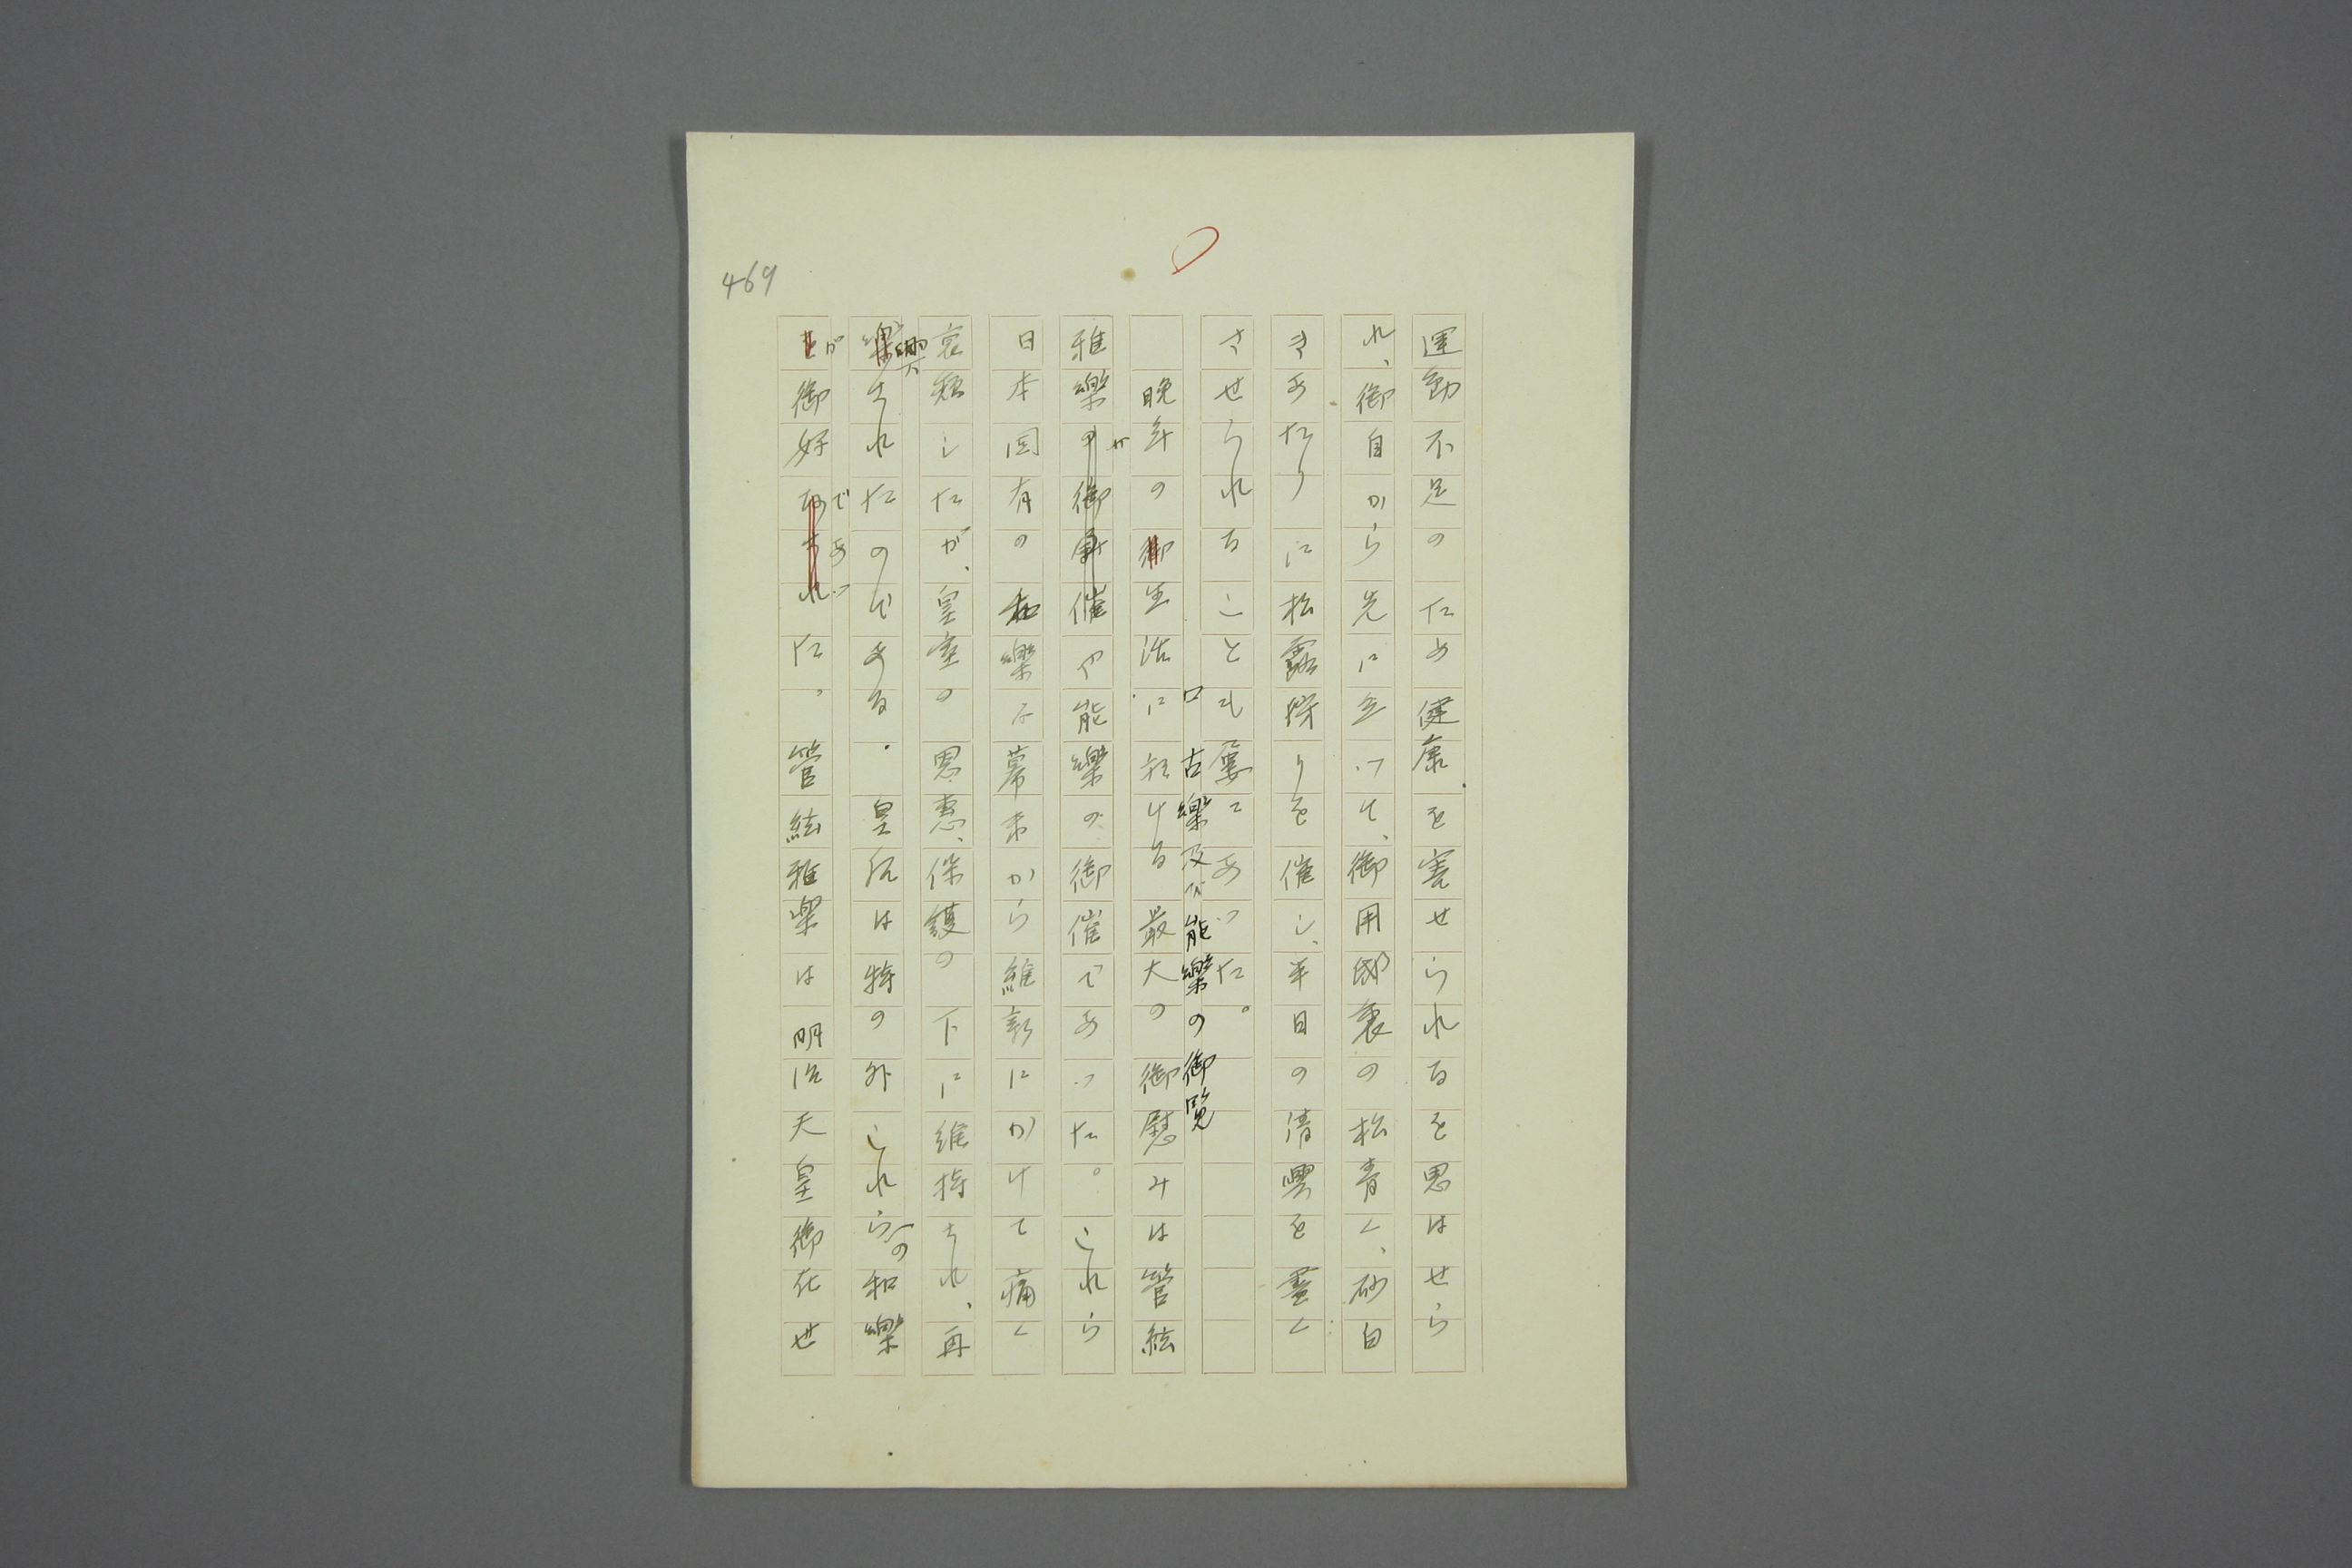 469
運動不足のため健康を害せられるを思はせら
れ、御自から先に立つて、御用邸裏の松青く、砂白
きあたりに松露狩りを催し、半日の清興を盡く
させられることも屡々あつた。
□古樂及び能樂の御覧
晩年の御生活に於ける最大の御慰みは管絃
雅樂の御催や能樂の御催であつた。これら
日本固有の和樂は幕末から維新にかけて痛く
哀頽したが、皇室の恩惠、保護の下に維持され、再
興されたのである。皇后は特の外これらの和樂
が御好であつた。管絃雅樂は明治天皇御在世